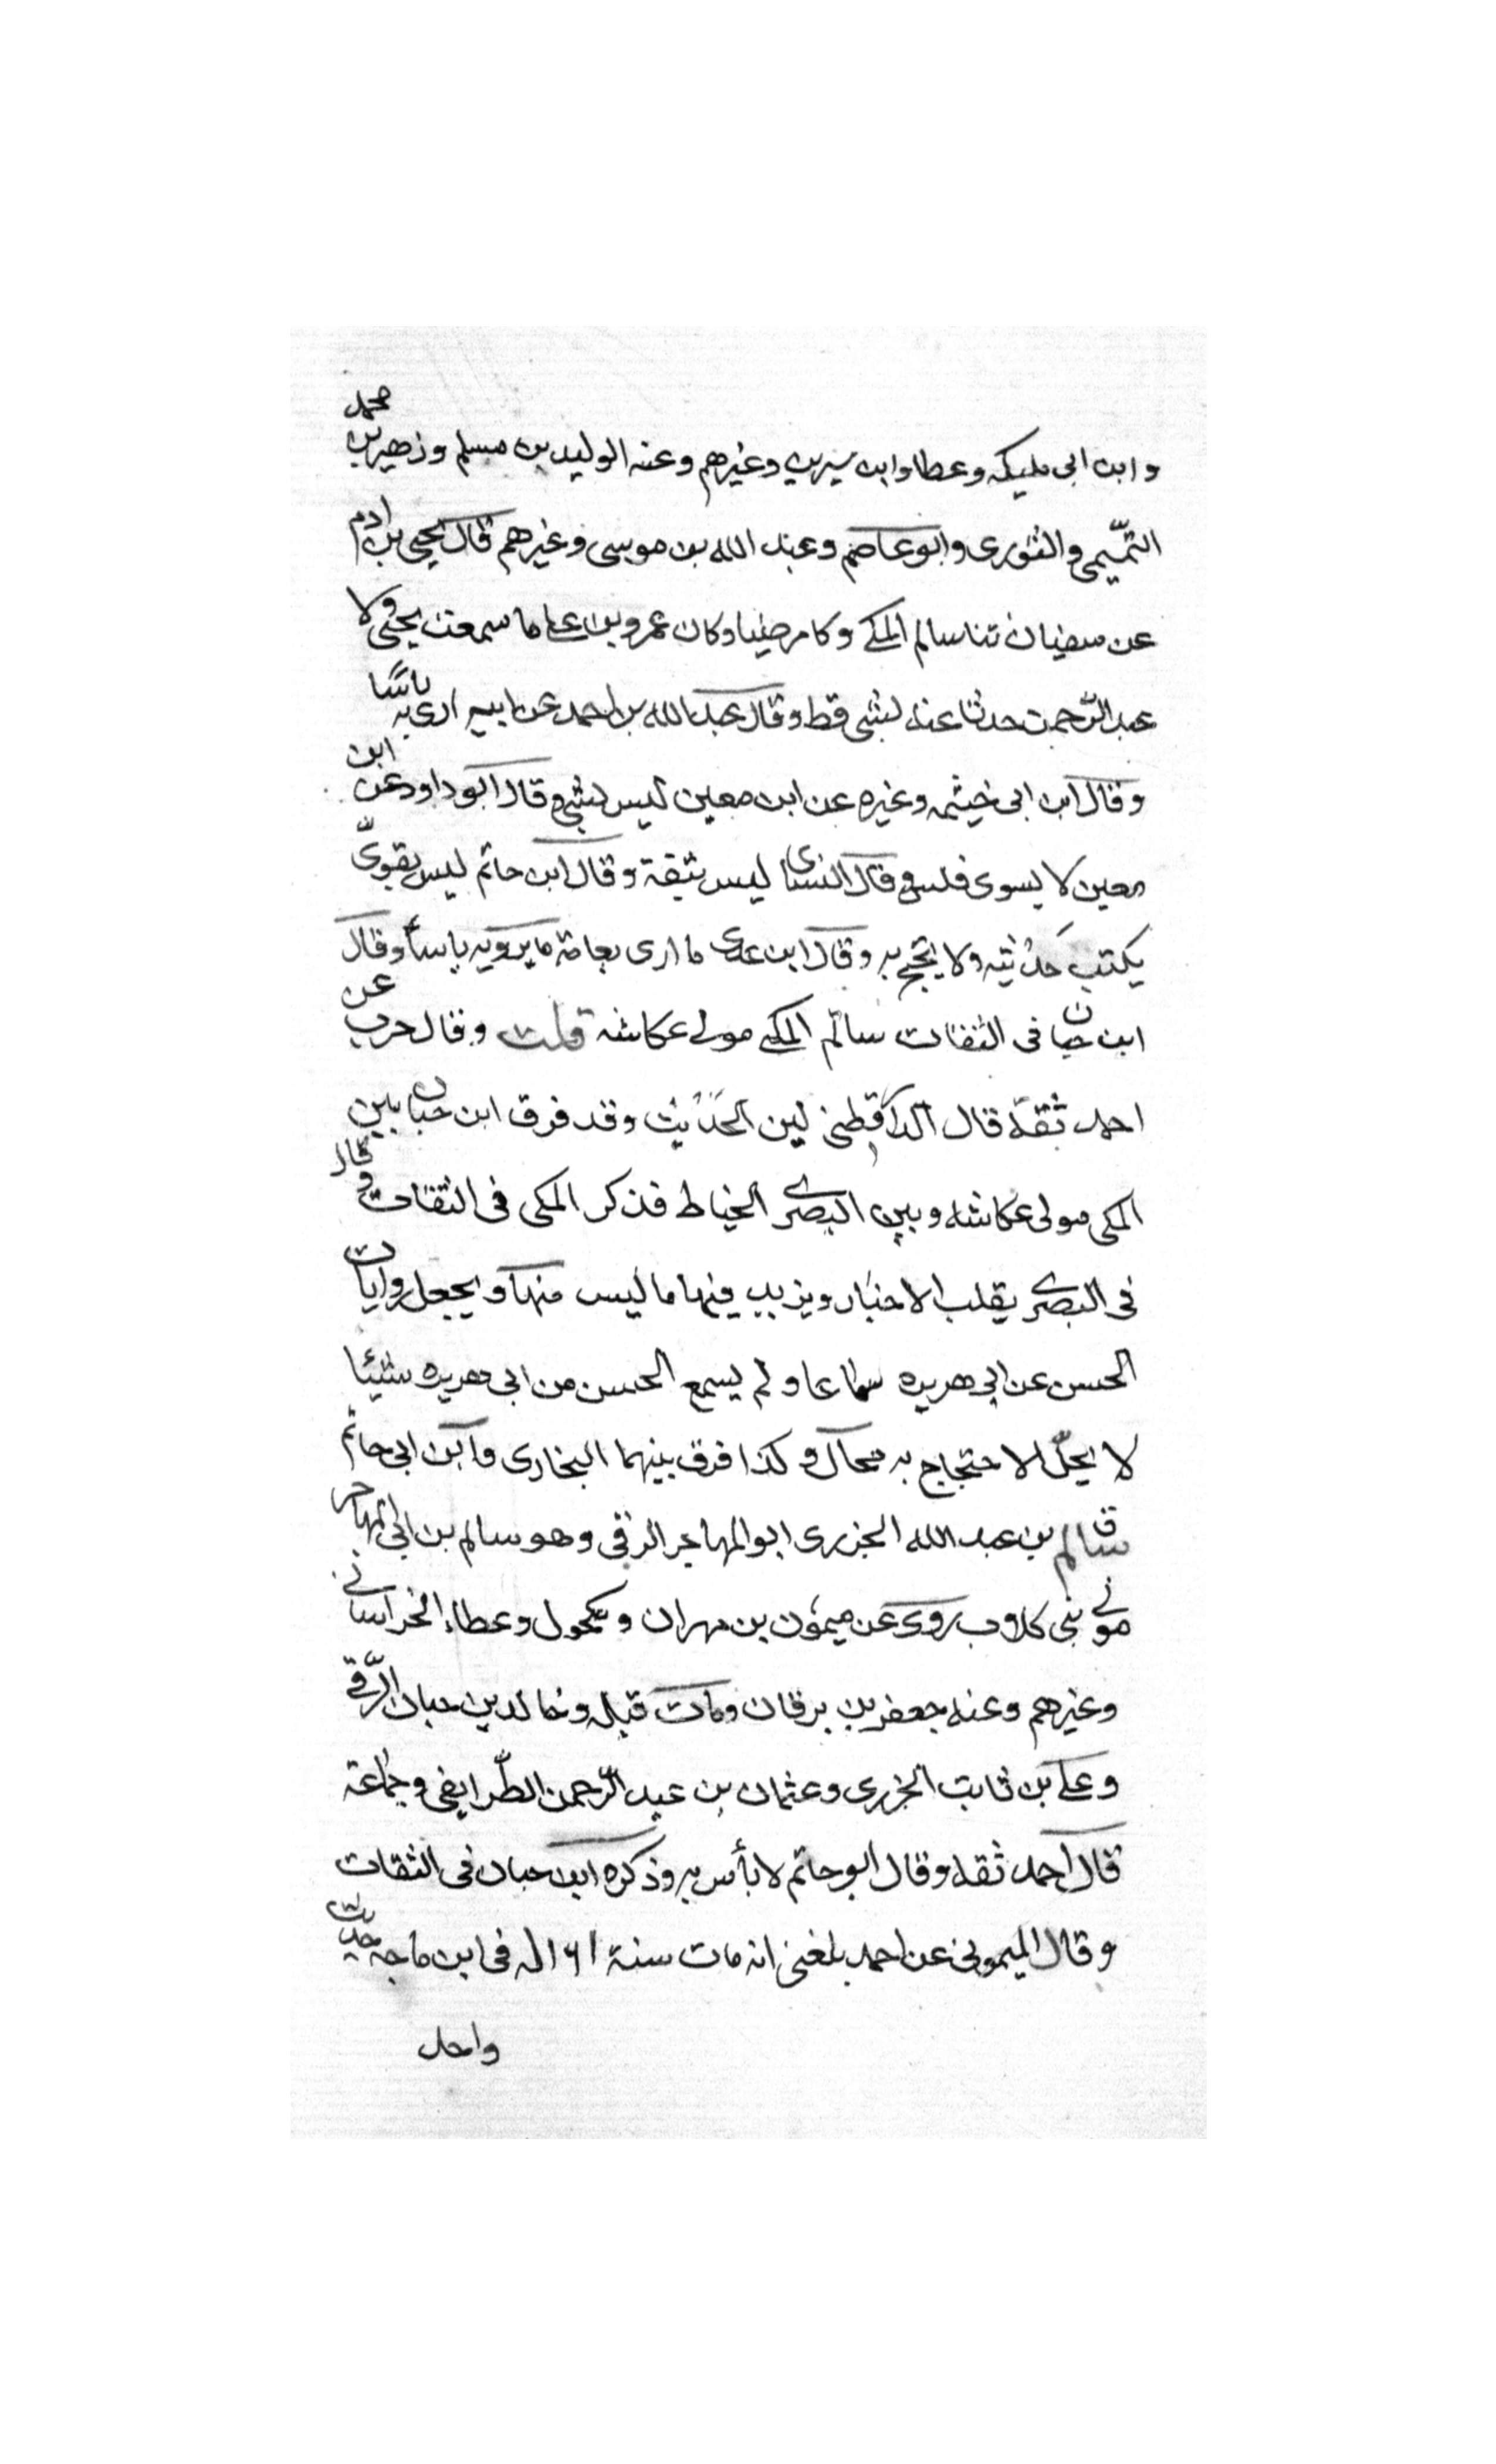 وابن ابى مليكه وعطا وابن سيرين وغيرهم وعنه الوليد بن مسلم وزهير بن محمد
التّميمى والثورى وابو عاصم وعبد الله بن موسى وغيرهم قال يحيى بن ادم
عن سفيان ثنا سالم المكے وكا مرضيا وكان عمرو بن على ما سمعت يحيى ولا
عبد الرّحمن حدثنا عنه بشى قط وقال عبد الله بن احمد عن ابيه ارى به باسًا
وقال ابن ابى خيثمه وغيره عن ابن معين ليس بشى وقال ابو داود عن ابن
معين لا يسوى فلس وقال النسائى ليس بثقة وقال ابن حاتم ليس بقوىّ
يكتب حديثه ولا يحتج به وقال ابن عدى ما ارى بعامة ما يرويه باسأ وقال
ابن حبان فى الثقات سالم المكے مولى عكاشه قلت وقال حرب عن
احمد ثقة قال الدارقطنى لين الحديث وقد فرق ابن حبان بين
المكى مولى عكاشه وبين البصرى الخياط فذكر المكى فى الثقات وقال
فى البصرى يقلب الاخبار ويزيد فيها ما ليس منها ويجعل روايات
الحسن عن ابى هريره سماعا ولم يسمع الحسن من ابى هريره شيئا
لا يحلّ الاحتجاج به محال وكذا فرق بينهما البخارى وابن ابى حاتم
ق سالم بن عبد الله الجزرى ابو المهاجر الرقى وهو سالم بن ابى المهاجر
مولى بنى كلاب روى عن ميمون بن مهران ومكحول وعطاء الخراسانى
وغيرهم وعنه جعفر بن برقان ومات قبله وخالد بن حبان الرّقے
وعلے بن ثابت الجزرى وعثمان بن عبد الرّحمن الطّرايفى وجماعة
قال احمد ثقه وقال ابو حاتم لا بأس به وذكره ابن حبان فى الثقات
وقال الميمونى عن احمد بلغنى انه مات سنة ۱۶۱ له فى ابن ماجه حديث
واحد